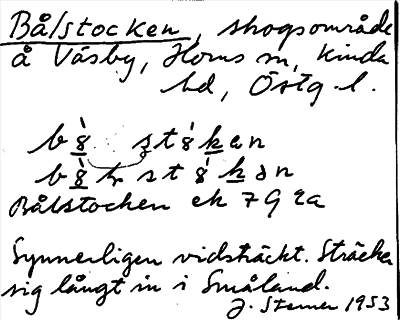 Bålstocken, skogsområde
å Väsby, Horns sn, Kinda
hd, Östg. l.
Bålstocken ek 7 G 2a
Synnerligen vidsträckt. Sträcker
sig långt in i Småland.
J. Sterner 1953